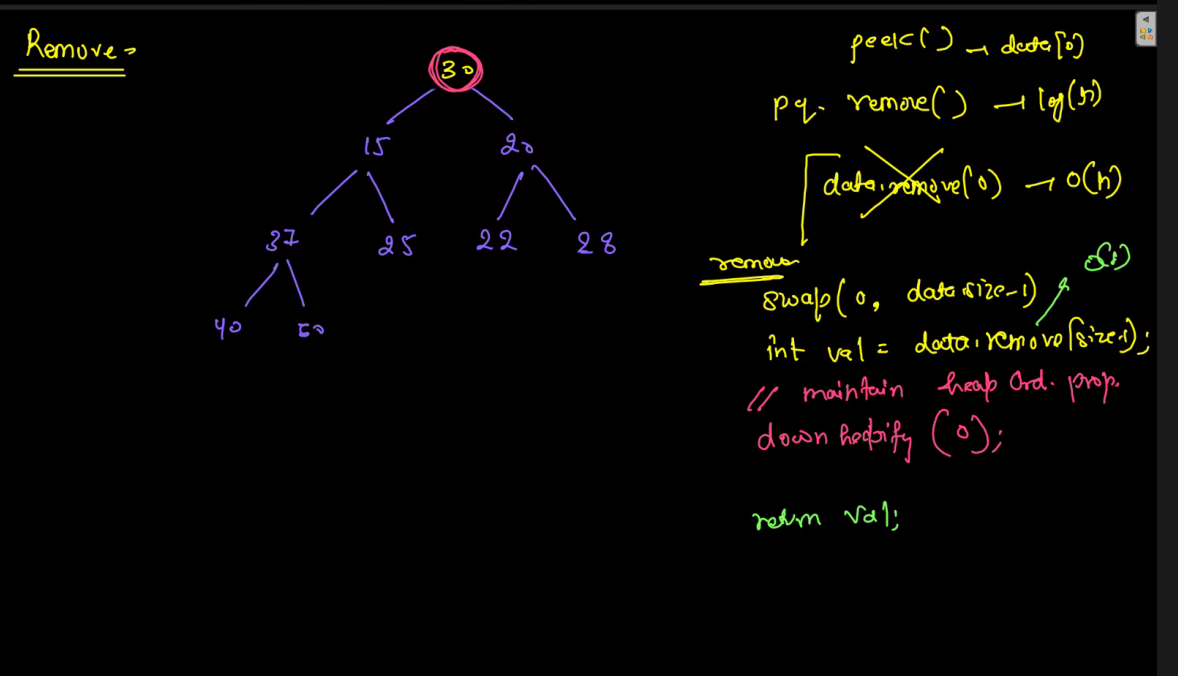 Remove -
30
15 20
37 25 22 28
40 50
peek() → data[0]
pq. remove() → log(n)
data.remove(0) → O(n)
remove
O(1)
swap(0, data.size-1)
int val = data.remove(size-1);
// maintain heap Ord. prop.
downheapify (0);
return val;